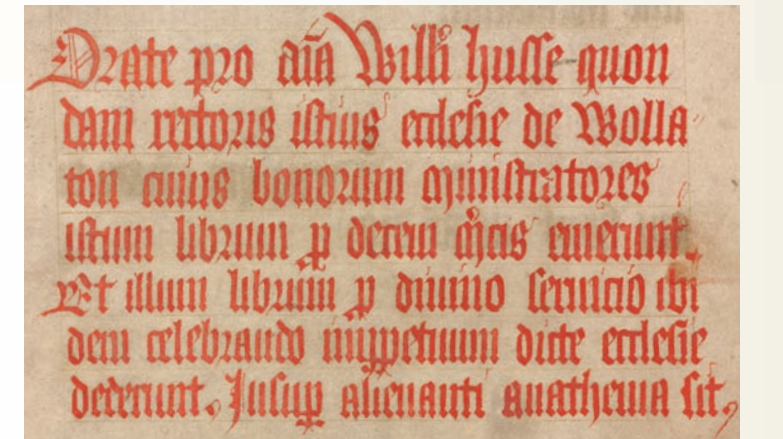 Orate pro aīa Willī husse quon
dam rectoris istius ecclesie de Wolla
ton cuius bonorum ministratores
istum librum ꝑ decem mͬcis emerunt
Et illum librum ꝓ diuino seruicio ibi
dem celebrando imꝑpetuum dicte ecclesie
dederunt. Insuꝑ alienanti anathema sit,